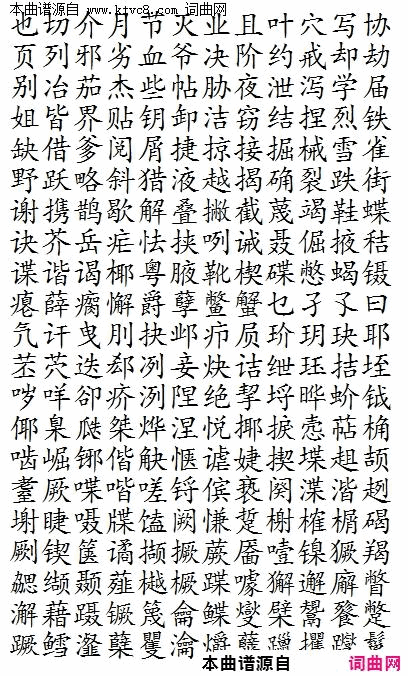 本曲谱源自 www.ktvc8.com 词曲网
也切介月节灭业且叶穴写协
页列邪劣血爷决阶约戒却劫
别冶茄杰些帖胁夜泄泻学届
姐皆界贴钥卸洁窃结捏烈铁
缺借爹阅屑捷掠接掘械雪雀
野跃略斜猎液越揭确裂跌街
谢携鹊歇解叠撇截蔑竭鞋蝶
诀芥岳疟怯挟咧诫聂倔掖秸
谍谐谒椰粤腋靴楔碟憋蝎镊
瘪薛瘸懈爵孽鳖蟹乜孑孓曰
气讦曳刖抉邺疖质玠玥玦耶
茎茓迭郄冽妾炔诘绁珏拮垤
哕咩卻疥洌陧绝挈埒晔蚧钺
倻臬瓞桀烨涅悦揶捩悫萜桷
啮崛铘偕觖惬谑婕揳堞趄颉
耋厥喋喈嗟锊傧亵阕渫湝趔
塮睫嗫牒馌阙慊踅榭榷榍碣
劂锲箧谲撷撅蕨靥噎镍獗羯
勰缬颞薤樾橛蹀噱獬邂廨瞥
澥藉蹑镢篾龠鲽燮檗鷔餮蹩
蹶鳕瀣糵矍瀹爝虌躐攫躞鬣
本曲谱源自
词曲网